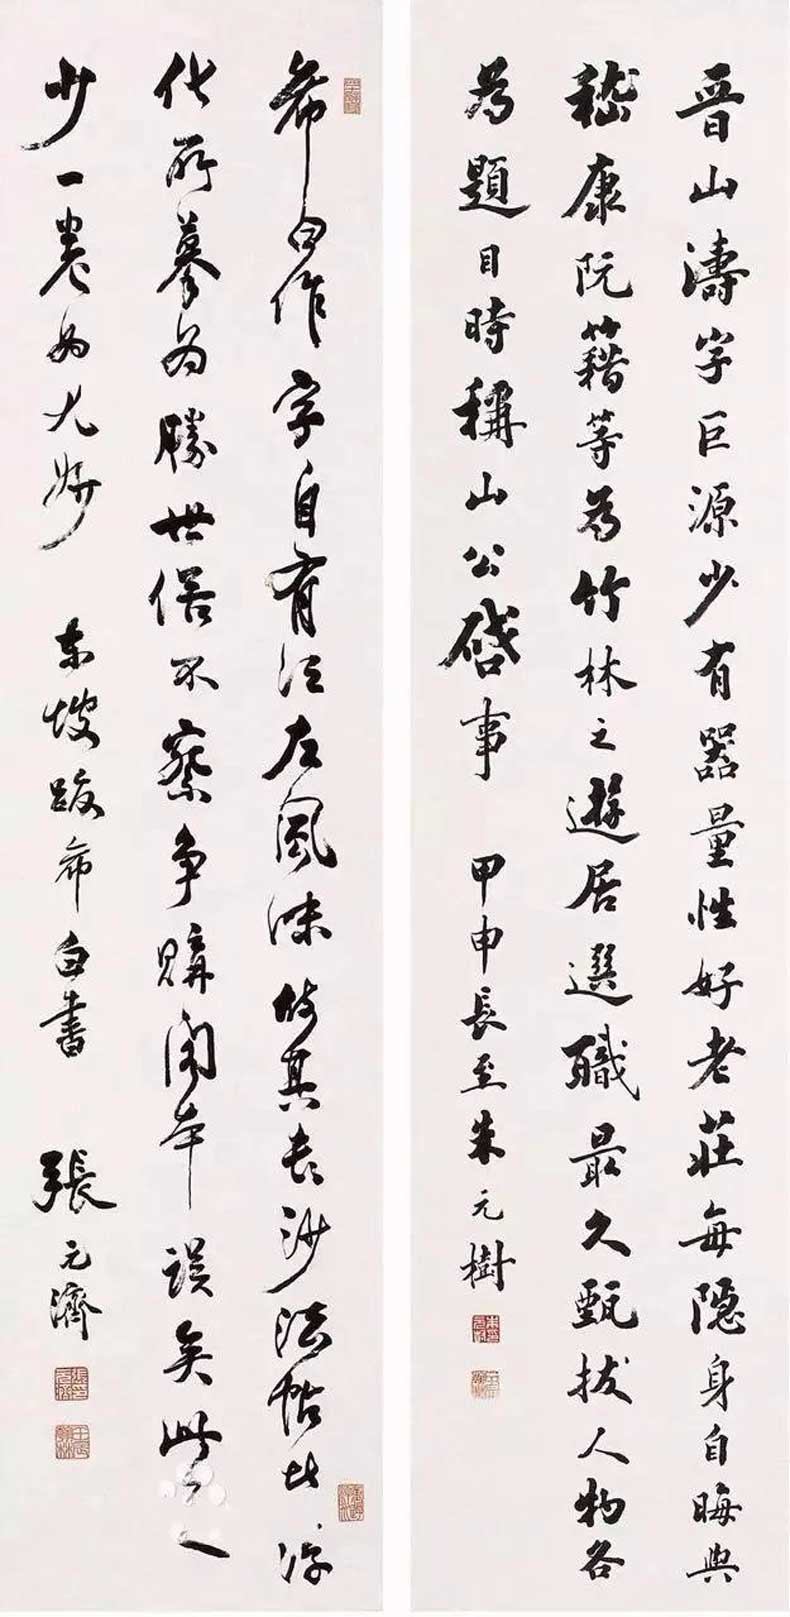 晋山濤字巨源少有器量性好老莊每隐身自晦與
嵇康阮籍等為竹林之遊居選職最久甄拔人物各
為題目時稱山公啓事 甲申長至朱元樹
希白作字自有江左風味故其長沙法帖比淳
化所摹為勝世俗不察争購閣本誤矣此
少一卷為尤妙 東坡跋希白書 張元濟